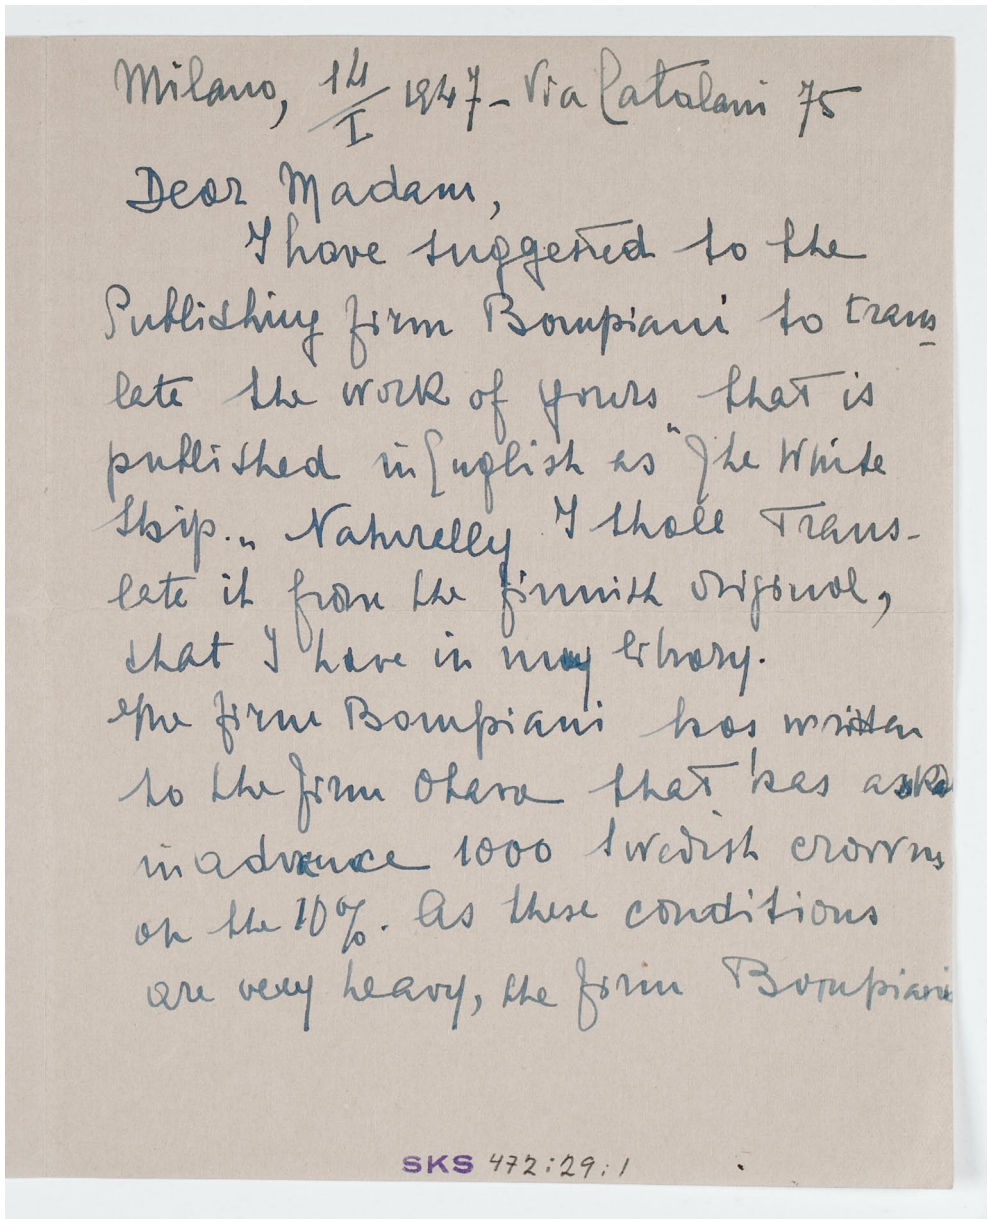 Milano, 14/I 1947 - Via Catalani 75
Dear Madam,
I have suggested to the
Publishing firm Bompiani to trans
late the work of yours that is
published in English as "The White
Ship." Naturelly I shall Trans-
late it from the finnish original,
that I have in my library.
The firm Bompiani has written
to the firm Otava that has asked
in advance 1000 Swedish crowns
on the 10%. As these conditions
are very heavy, the firm Bompiani
SKS 472:29:1